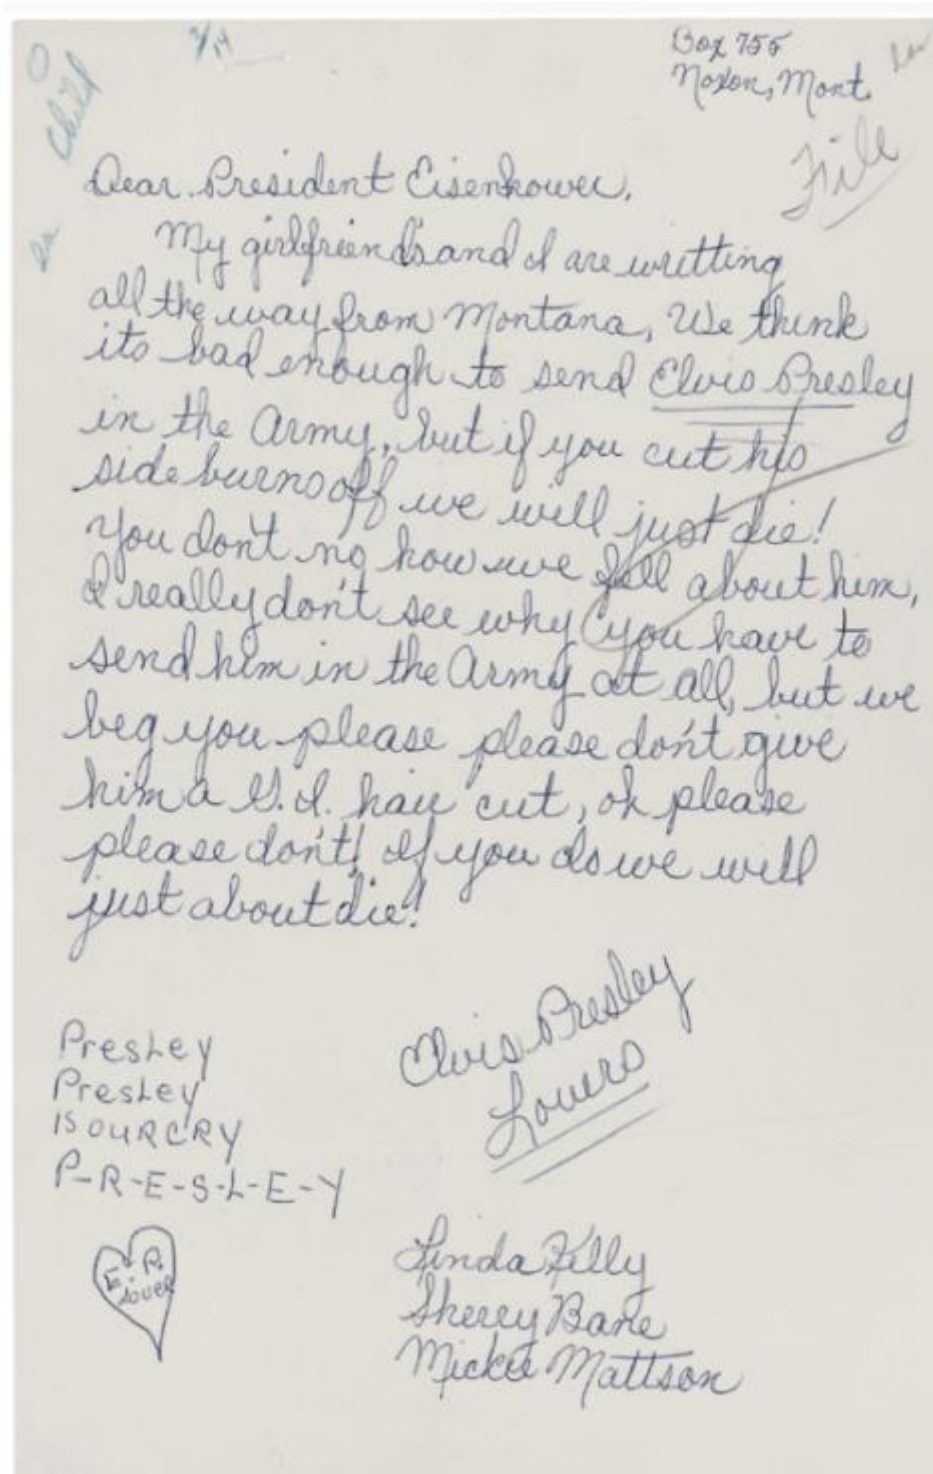 3/14
Child
Box 755
Noxon, Mont.
File
Dear President Eisenhower,
My girlfriend's and I are writting
all the way from Montana, We think
its bad enough to send Elvis Presley
in the Army, but if you cut his
side burns off we will just die!
You don't no how we fell about him,
I really don't see why you have to
send him in the Army at all, but we
beg you please please don't give
him a G.I. hair cut, oh please
please don't! If you do we will
just about die!
Elvis Presley
Lovers
Presley
Presley
IS OUR CRY
P-R-E-S-L-E-Y
E.P.
Lover
Linda Kelly
Sherry Bane
Mickie Mattson